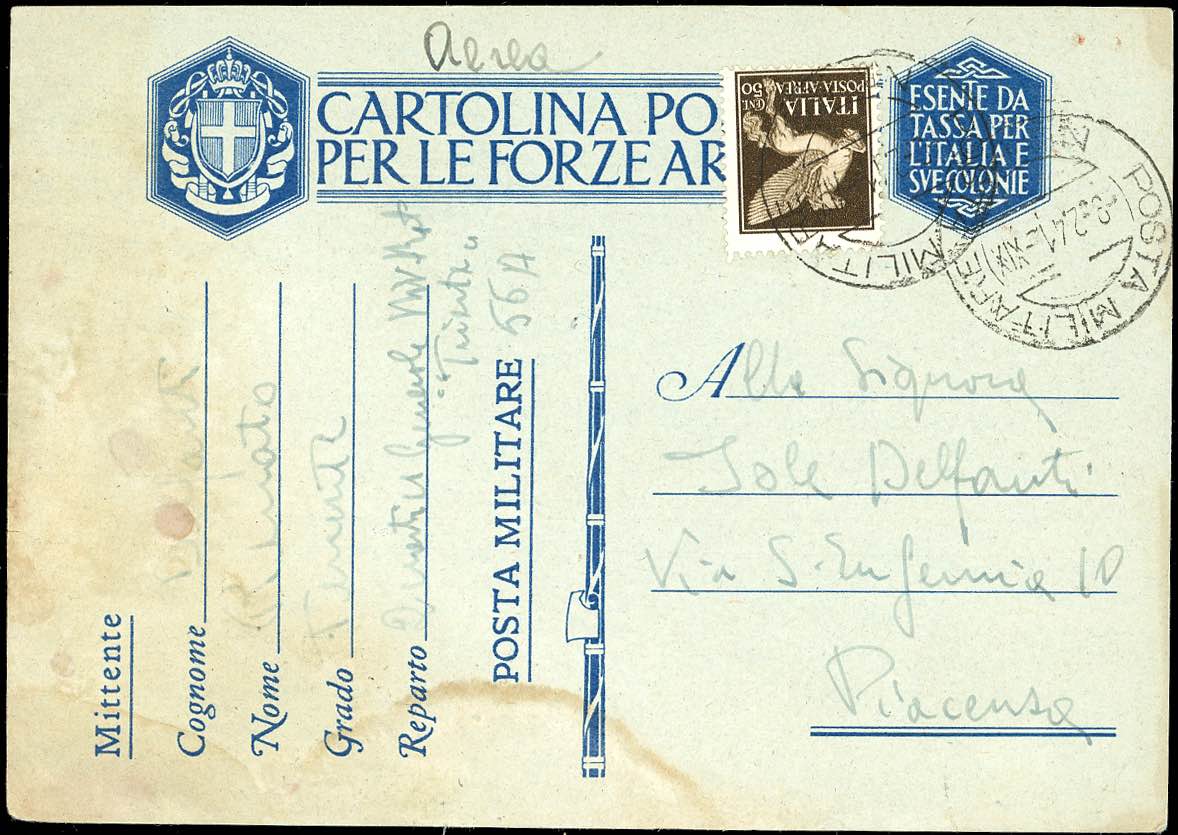 Aerea
CARTOLINA PO
PER LE FORZE AR
ITALIA
POSTA-AEREA
CENT 50
ESENTE DA
TASSA PER
L'ITALIA E
SVE COLONIE
POSTA MILITARE
-8-2-41-XIX
MILITARE
Mittente
Cognome
Nome Renato
Grado Tenente
Reparto
"Trieste"
POSTA MILITARE 56 A
Alla Signora
Iole Delfanti
Via S. Eufemia 10
Piacenza